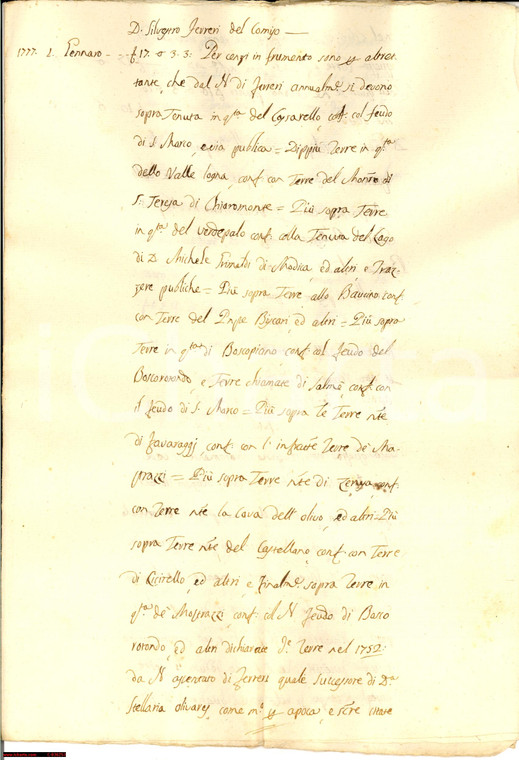 D. Silvestro Ferreri del Comiso
1777. 1. Gennaro f. 17. 3. 3: Per censi in frumento sono p. altret-
tante, che dal N di Ferreri annualm.e si devono
sopra Tenuta in q.ta del Cassarello, conf. col feudo
di S. Marco, e via publica = Dippiù Terre in q.ta
della Valle Cogna, conf. con Terre del Mon.rio di
S. Teresa di Chiaromonte = Più sopra Terre
in q.ta del verdepalo conf. colla Tenuta del Lago
di D. Michele Grimaldi di Modica, ed altri, e Traz-
zere publiche = Più sopra Terre allo conf.
con Terre del Pnpe Biscari, ed altri = Più sopra
Terre in q.ta di Boscopiano conf. col feudo del
Boscorotondo, e Terre chiamate di Salmè, conf. con
il feudo di S. Marco = Più sopra le Terre n.te
di Favaraggi conf. con l'infratte Terre de Ma-
strazzi = Più sopra Terre n.te di conf.
con Terre n.te la Cava dell'olivo, ed altri = Più
sopra Terre n.te del Castellano, conf. con Terre
di Cicirello, ed altri, e Finalm.e sopra Terre in
q.ta de Mastrazzi conf. col N feudo di Bosco
rotondo, ed altri dichiarate d.e Terre nel 1752:
da N di Ferreri quale successore di D.a
Stellaria olivares, come p. apoca, e citate